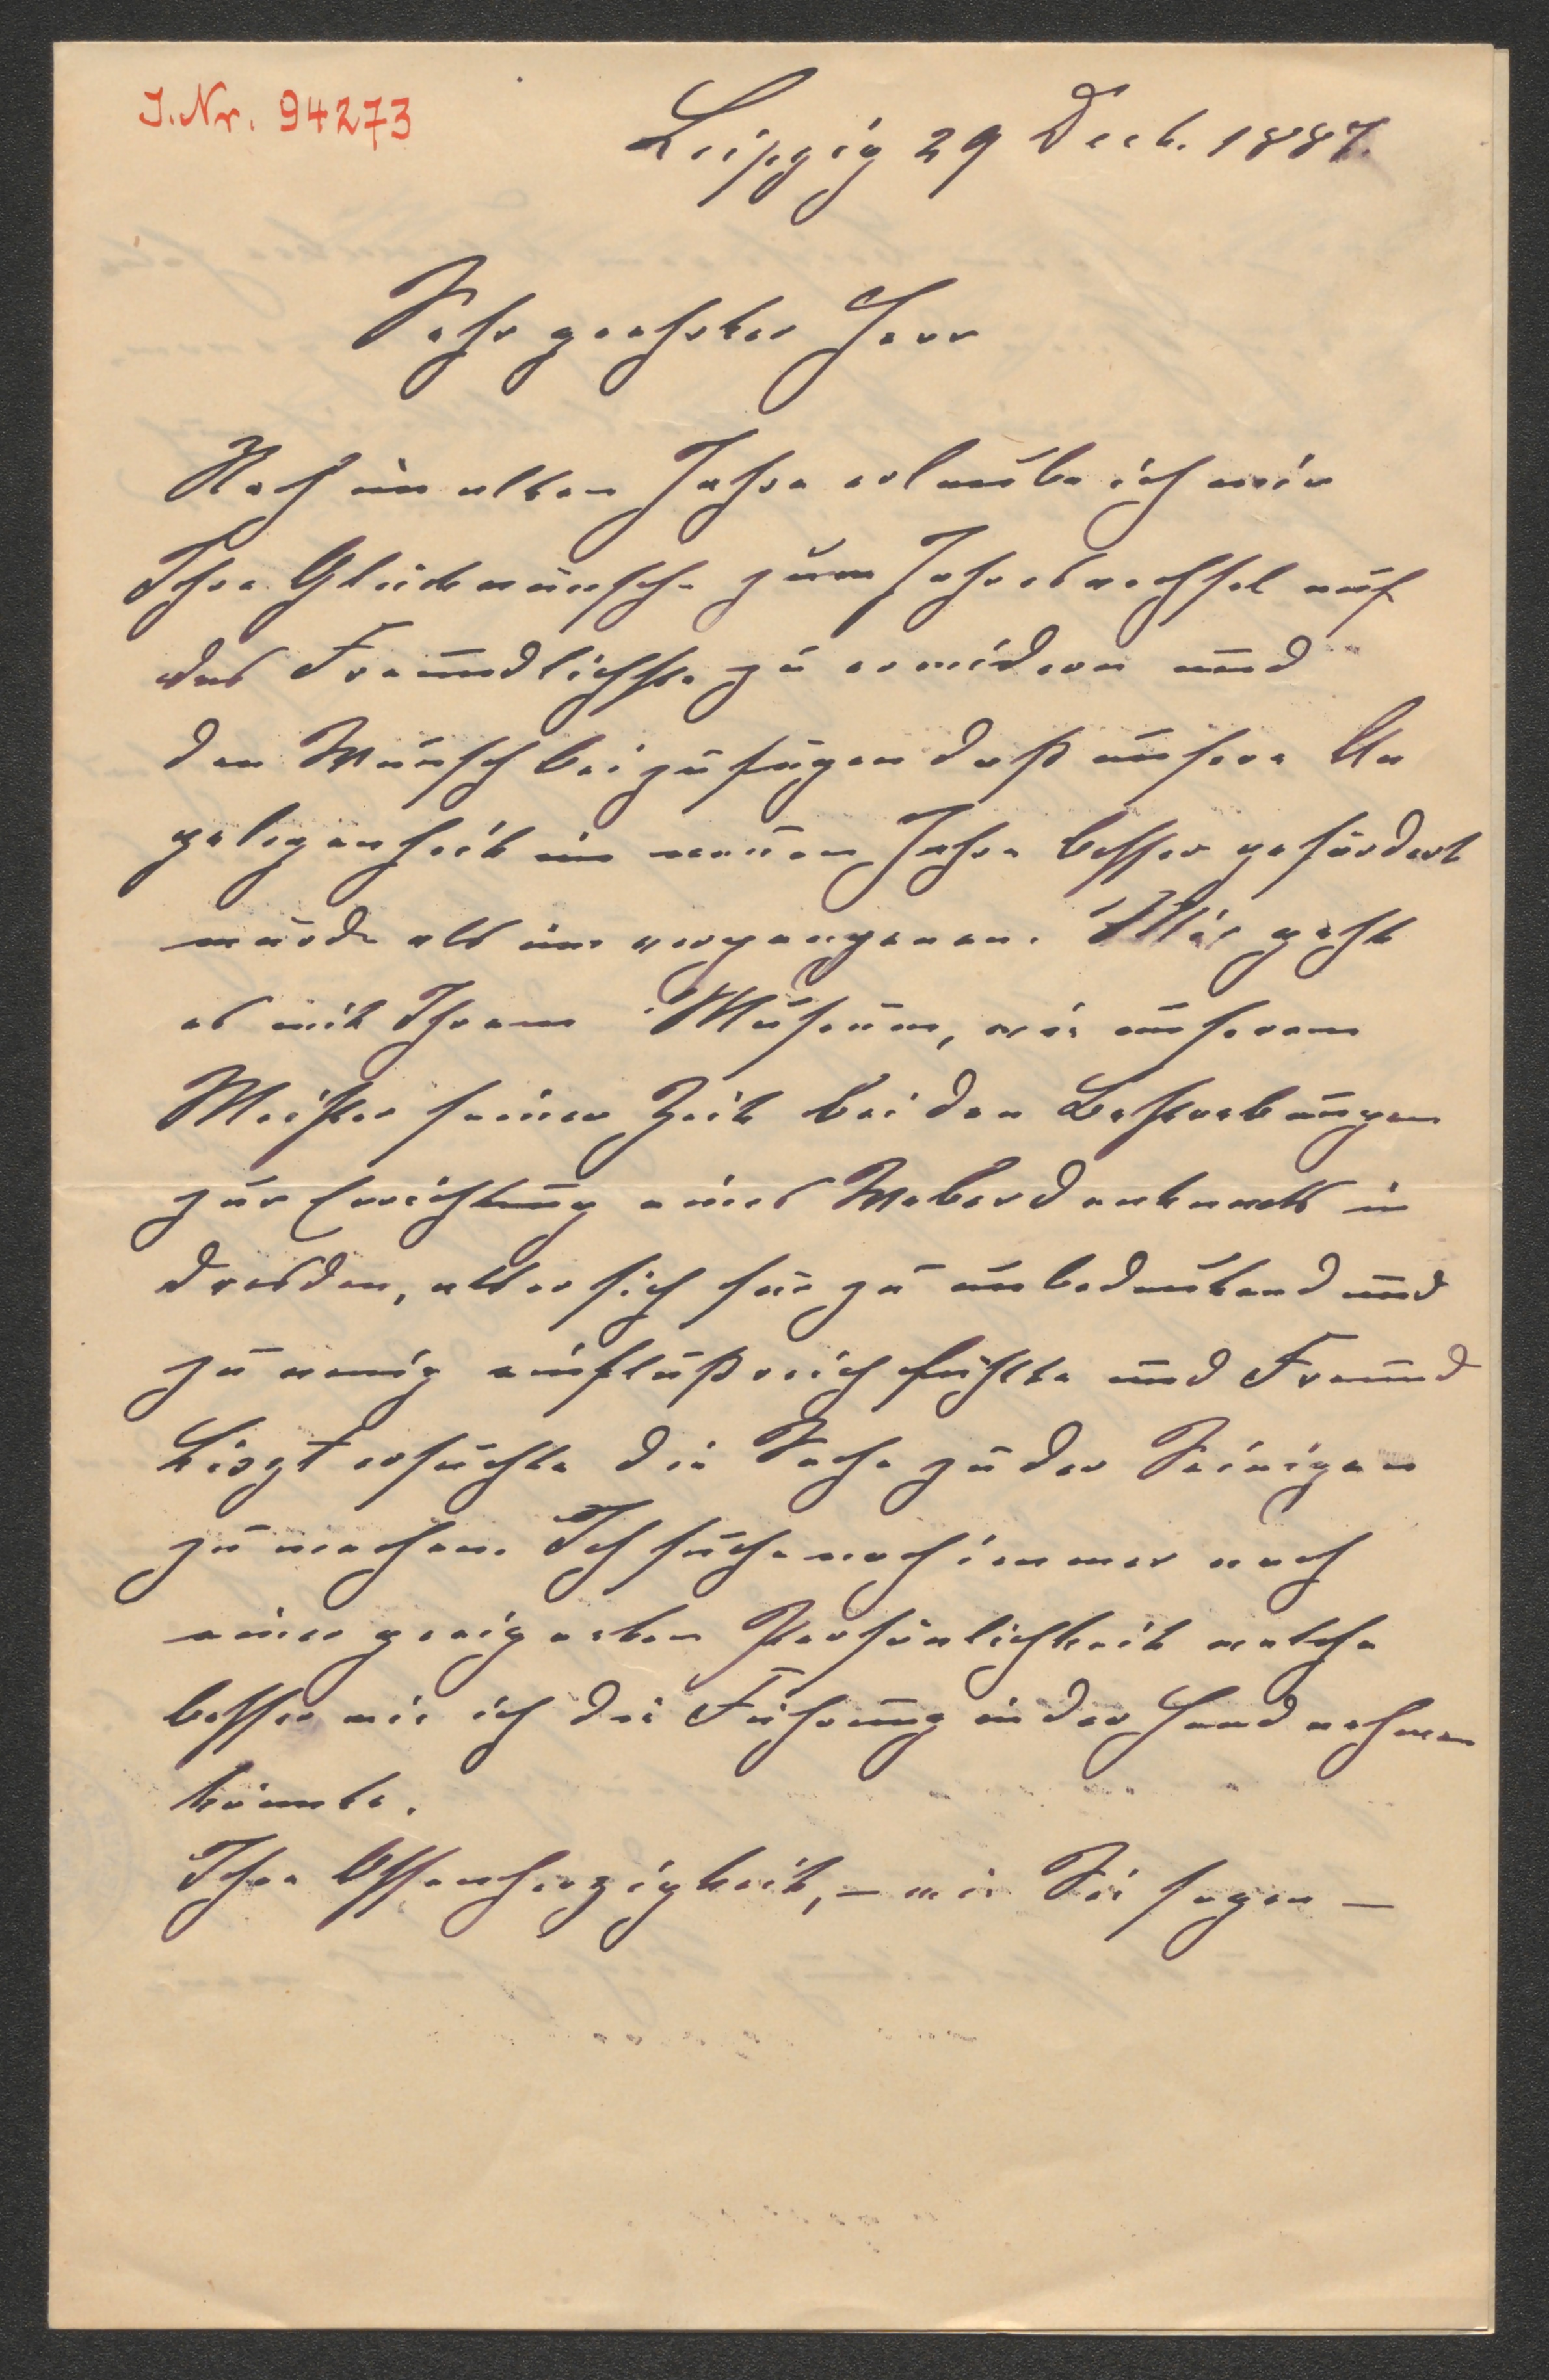 J.Nr. 94273
Leipzig 29 Decb. 1887.
Sehr geehrter Herr
Noch im alten Jahre erlaube ich mir
Ihre Glückwünsche zum Jahreswechsel auf
das Freundlichste zu erwidern und
den Wunsch beizufügen daß unsere An
gelegenheit im neuen Jahre besser gefördert
würde als im vergangenen. Mir geht
es mit Ihrem Museum, wie unserem
Meister seiner Zeit bei den Bestrebungen
zur Errichtung eines Weberdenkmals in
Dresden, als er sich für zu unbedeutend und
zu wenig einflußreich fühlte und Freund
Liszt ersuchte die Sache zu der Seinigen
zu machen. Ich suche noch immer nach
einer geeigneten Persönlichkeit welche
besser wie ich die Führung in der Hand nehmen
könnte.
Ihre Offenherzigkeit, – wie Sie sagen –